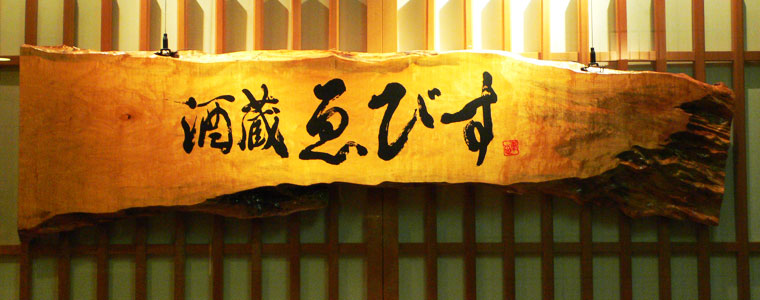 酒蔵ゑびす